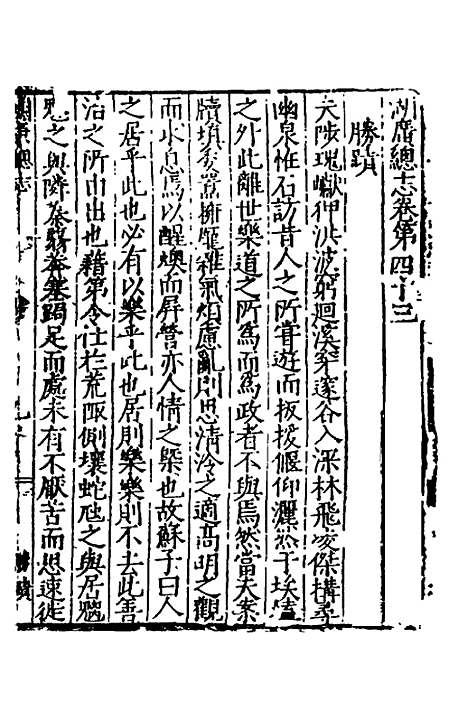 湖廣總志卷第四十三
勝蹟
夫陟瑰巘俯洪波窮迴溪穿邃谷入深林飛凌傑構尋
幽泉怪石訪昔人之所嘗遊而板援偃仰灑然于埃𡏖
之外此離世樂道之所爲而爲政者不與焉然當夫案
牘填委囂擁龐雜氣煩慮亂則思清泠之適高明之觀
而水息焉以醒燠而屏昏亦人情之槩也故蘇子曰人
之居乎此也必有以樂乎此也居則樂樂則不去此善
治之所由出也藉第令仕於荒陬側壤蛇虺之與居魑
魅之與隣蓁蒭奔塞跼足而處未有不厭苦而思速徙